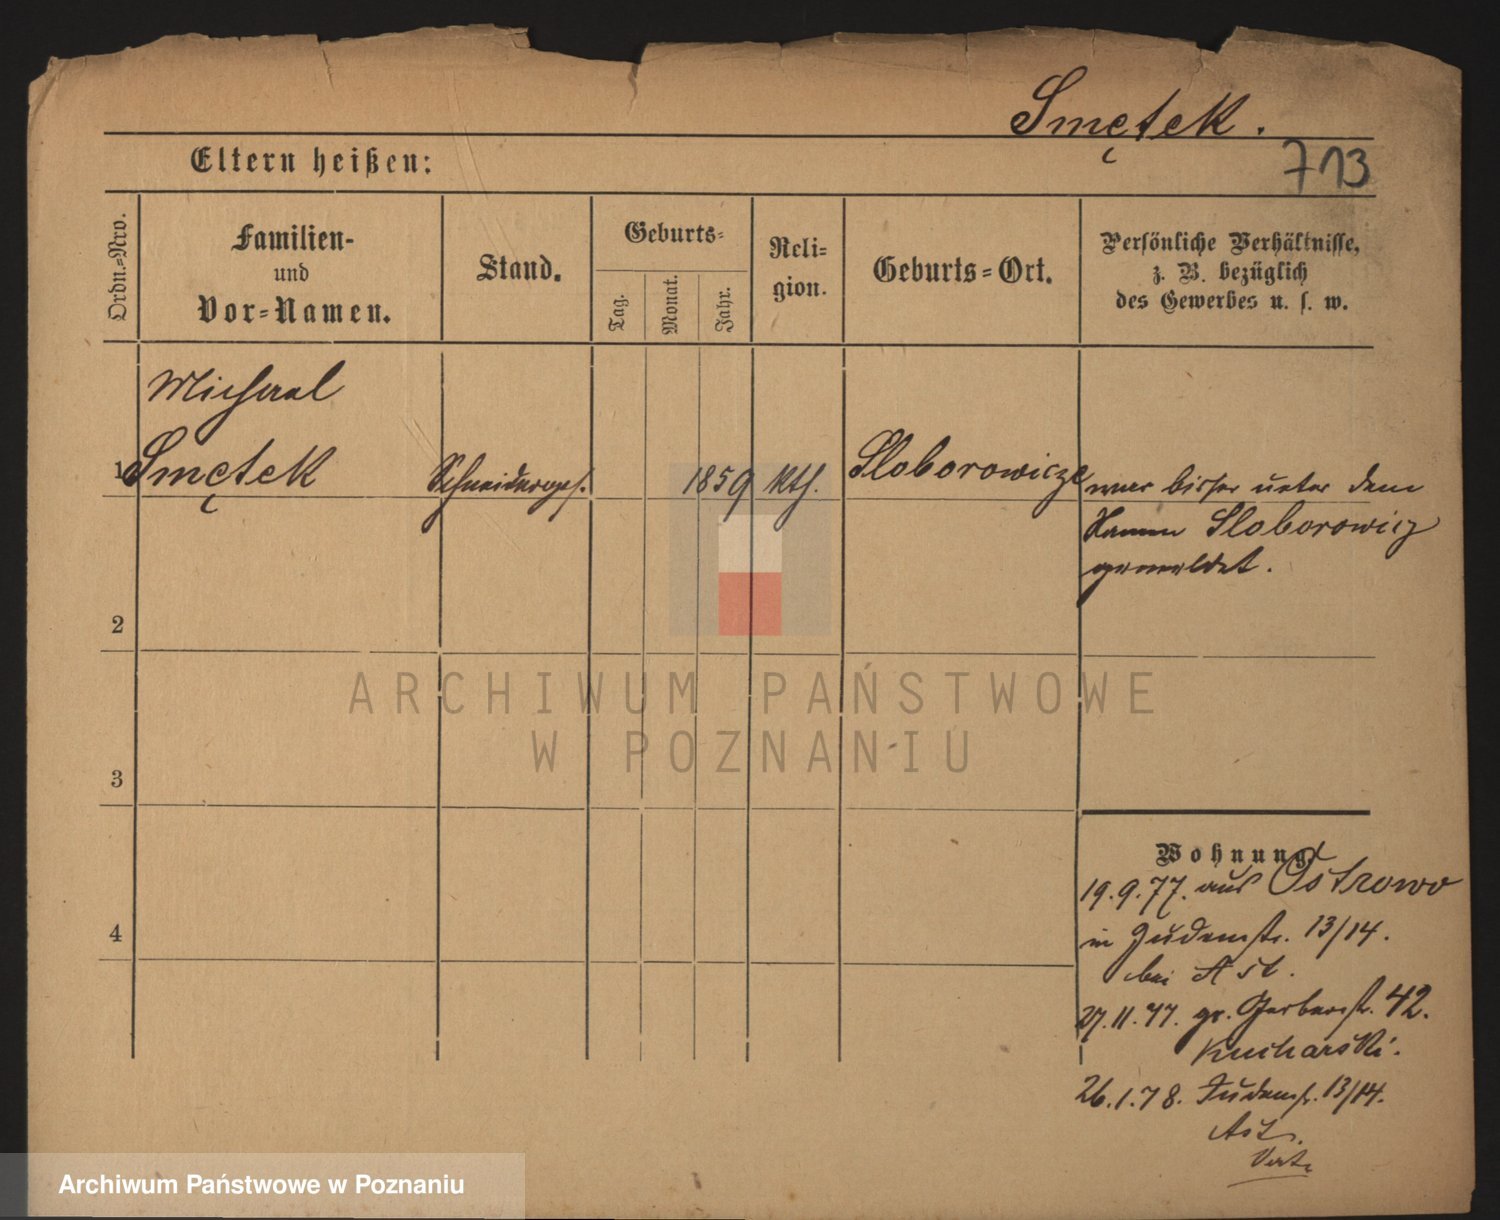 Smętek.
713
Eltern heißen:
Ordn.=Nro.
Familien-
und
Vor=Namen.
Stand.
Geburts=
Tag.
Monat.
Jahr.
Reli=
gion.
Geburts=Ort.
Persönliche Verhältnisse,
z. B. bezüglich
des Gewerbes u. s. w.
Michael
1 Smętek Schneiderges. 1859 kth. Sloborowicze war bisher unter dem
Namen Sloborowicz
gemeldet.
2
3
4
ARCHIWUM PAŃSTWOWE
W POZNANIU
Wohnung
19.9.77. aus Ostrowo
in Judenstr. 13/14.
bei Ast.
27.11.77. gr. Gerberstr. 42.
Kucharski.
26.1.78. Judenstr. 13/14.
Ast.
Archiwum Państwowe w Poznaniu